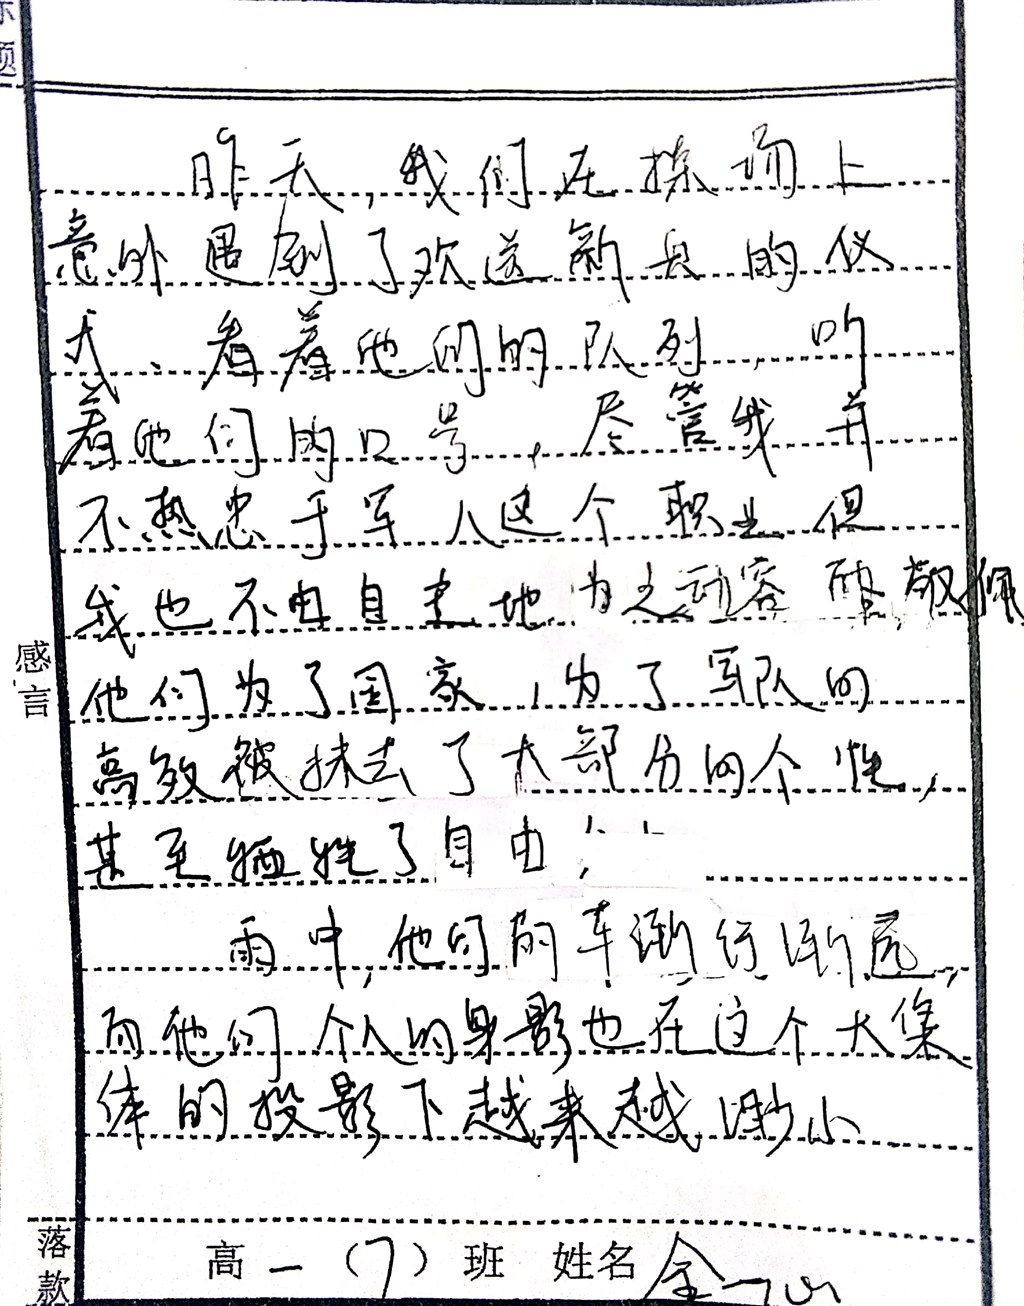 标
题
昨天，我们在操场上
意外遇到了欢送新兵的仪
式、看着他们的队列，听
着他们的口号，尽管我并
不热忠于军人这个职业但
我也不由自主地为之动容 敬佩
他们为了国家，为了军队的
高效被抹去了大部分的个性，
甚至牺牲了自由，
雨中，他们的车渐行渐远，
而他们个人的身影也在这个大集
体的投影下越来越渺小
感
言
落
款
高一（7）班 姓名